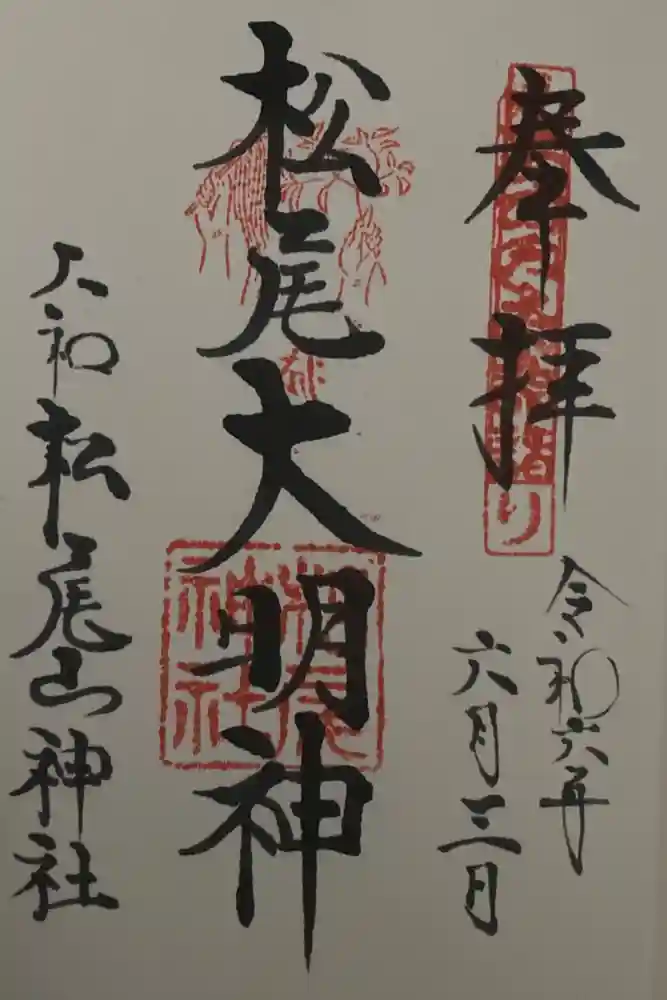 奉拝
令和六年
六月三日
松尾大明神
松尾
神社
大和松尾山神社